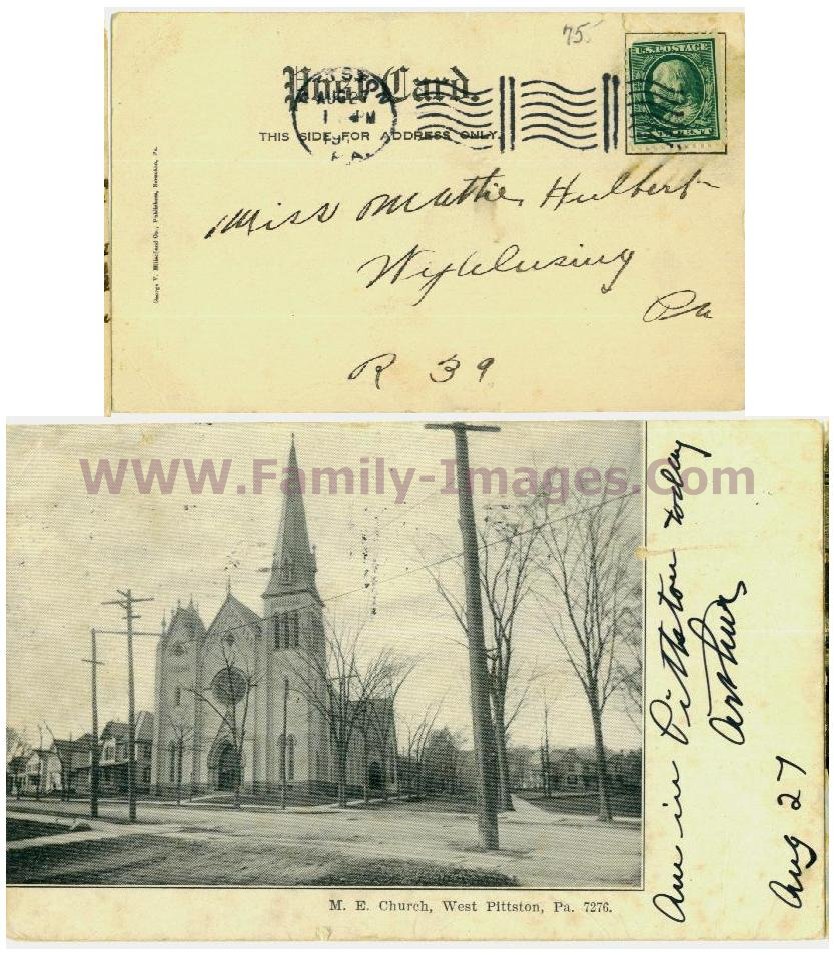 75
Post Card.
U.S. POSTAGE
ONE CENT
AUG 27
M
191
PA.
THIS SIDE FOR ADDRESS ONLY.
George V. Millar and Co., Publishers, Scranton, Pa.
Miss Mattie Hulbert
Wyalusing
Pa
R 39
WWW.Family-Images.Com
Am in Pittston today
Arthur
Aug 27
M. E. Church, West Pittston, Pa. 7276.